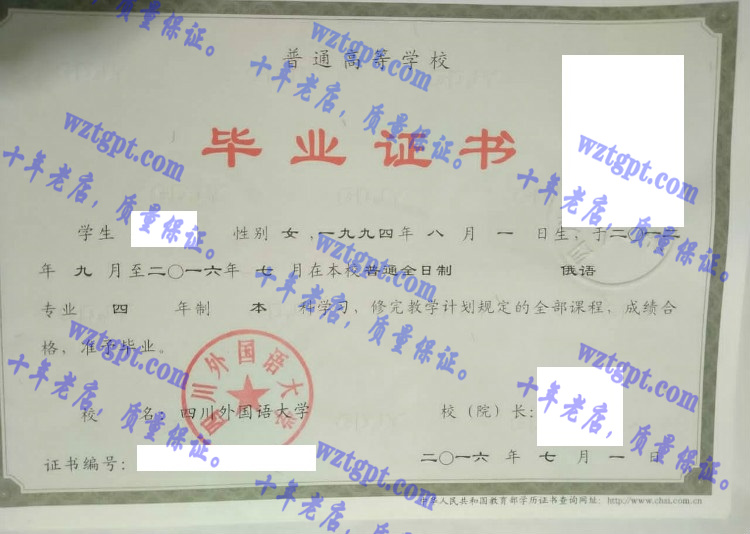 普通高等学校
毕业证书
学生 性别 女 ,一九九四年 八 月 一 日生, 于二〇一二
年 九 月至二〇一六年 七 月在本校普通全日制 俄语
专业 四 年制 本 科学习, 修完教学计划规定的全部课程, 成绩合
格, 准予毕业。
四川外国语大学
校 名: 四川外国语大学 校(院)长:
证书编号: 二〇一六 年 七 月 一 日
中华人民共和国教育部学历证书查询网址: http://www.chsi.com.cn
wztgpt.com
十年老店,质量保证。
wztgpt.com
十年老店,质量保证。
wztgpt.com
十年老店,质量保证。
wztgpt.com
十年老店,质量保证。
wztgpt.com
十年老店,质量保证。
wztgpt.com
十年老店,质量保证。
wztgpt.com
十年老店,质量保证。
wztgpt.com
十年老店,质量保证。